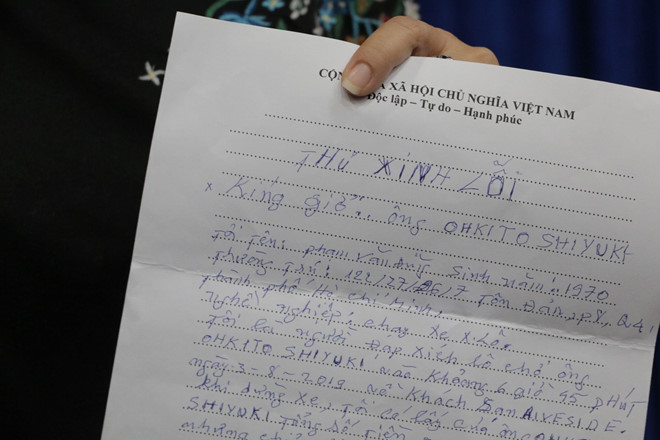 CỘN A XÃ HỘI CHỦ NGHĨA VIỆT NAM
Độc lập – Tự do – Hạnh phúc
THƯ XINH LỖI
x Kíng giởi: ông OHKITO SHIYUKI
Tôi Tên: phạm văn Dũng Sinh năm: 1970
Thường Trú: Tôn Đản, p8, Q4,
Thành phố Hồ Chí Minh.
Nghề nghiệp: chạy xe x.Lô.
Tôi là người Đạp xích lô chở ông
OHKITO SHIYUKI vào khoảng 6 giờ 55 phút
ngày 3-8-2019 về khách sạn RIVESIDE.
khi dừng xe, Tôi có lấy của ông
SHIYUKI Tổng số Tiền
nhưng